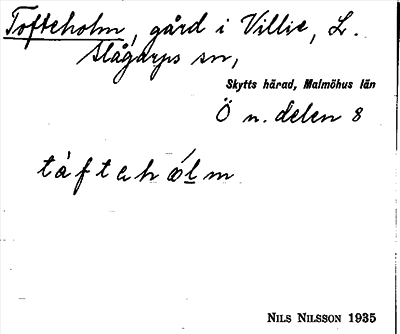 Tofteholm, gård i Villie, L.
Slågarps sn,
Skytts härad, Malmöhus län
Ö n. delen 8
tåftehólm
NILS NILSSON 1935